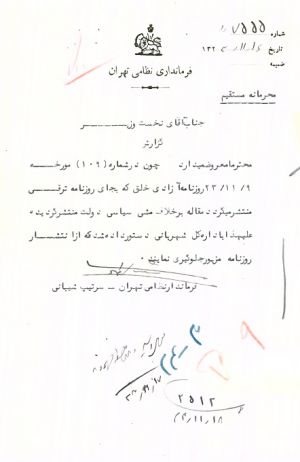 شماره ۷۵۵۵
تاریخ
ضمیمه
فرمانداری نظامی تهران
محرمانه مستقیم
جناب آقای نخست وزیر
گزارش
محترما معروض میدارد چون در شماره (۱۰۹) مورخه
۲۳/۱۱/۹ روزنامه آزادی خلق که بجای روزنامه ترقی
منتشر میگردد مقاله برخلاف مشی سیاسی دولت منتشر گردیده
علیهذا باداره کل شهربانی دستور داده شد که از انتشار
روزنامه مزبور جلوگیری نمایند.
فرماندار نظامی تهران - سرتیپ شیبانی
۲۵۱۲